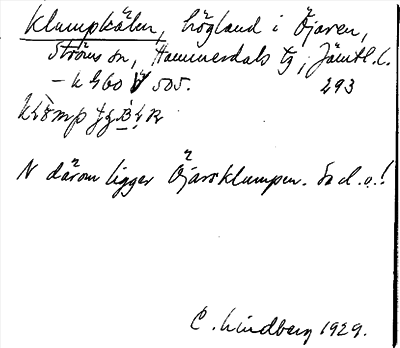 Klumpkälen, högland i Öjaren,
Ströms sn, Hammerdals tg, Jämtl. l.
– k 460 v 505. 293
N därom ligger Öjarsklumpen. Se d. o.!
C. Lindberg 1929.